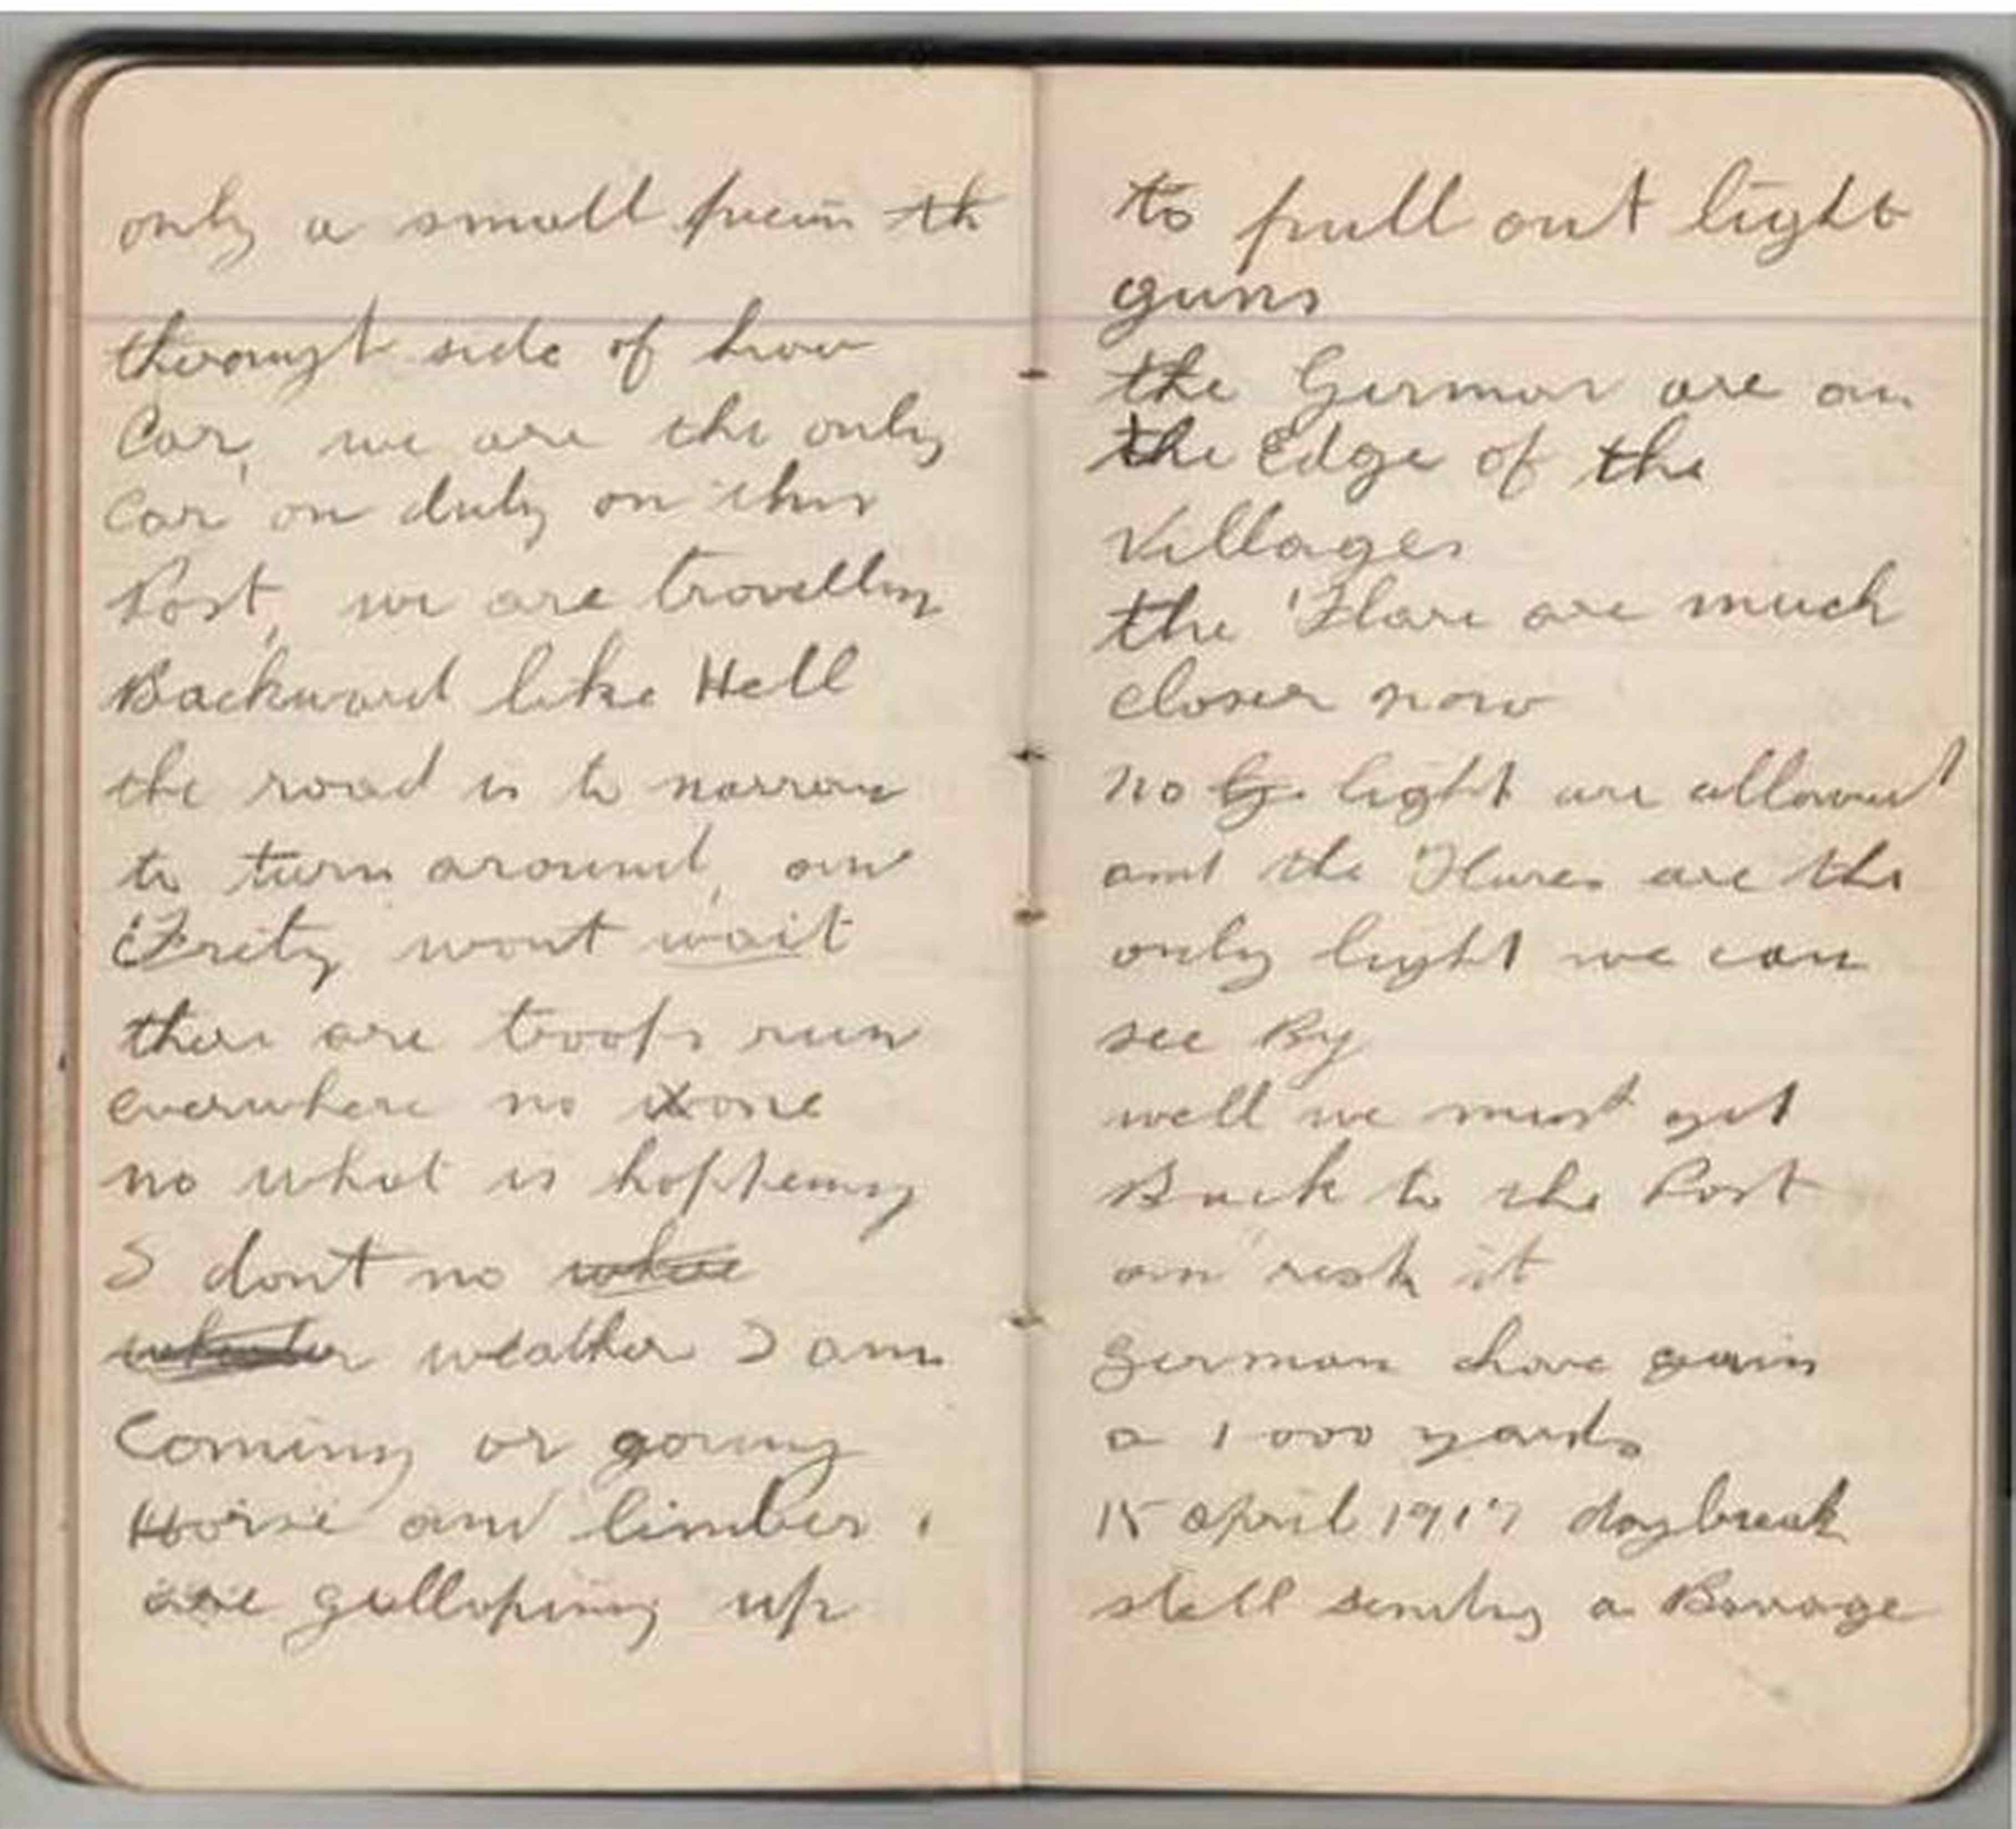 only a small
side of
Car, we are the only
Car on duty on this
Post, we are travelling
Backward like Hell
the road is to narrow
to turn around, an
Fritz wont wait
there are troops run
everwhere no one
no what is happening
I dont no
weather I am
Coming or going
Horse and limber
are galloping up
to pull out light
guns
the German are on
the Edge of the
Villages
the Flare are much
closer now
no light are allowed
and the Flares are the
only light we can
see By
well we must get
Back to the Post
an risk it
German have gain
a 1000 yards
15 april 1917 daybreak
still sending a Barage